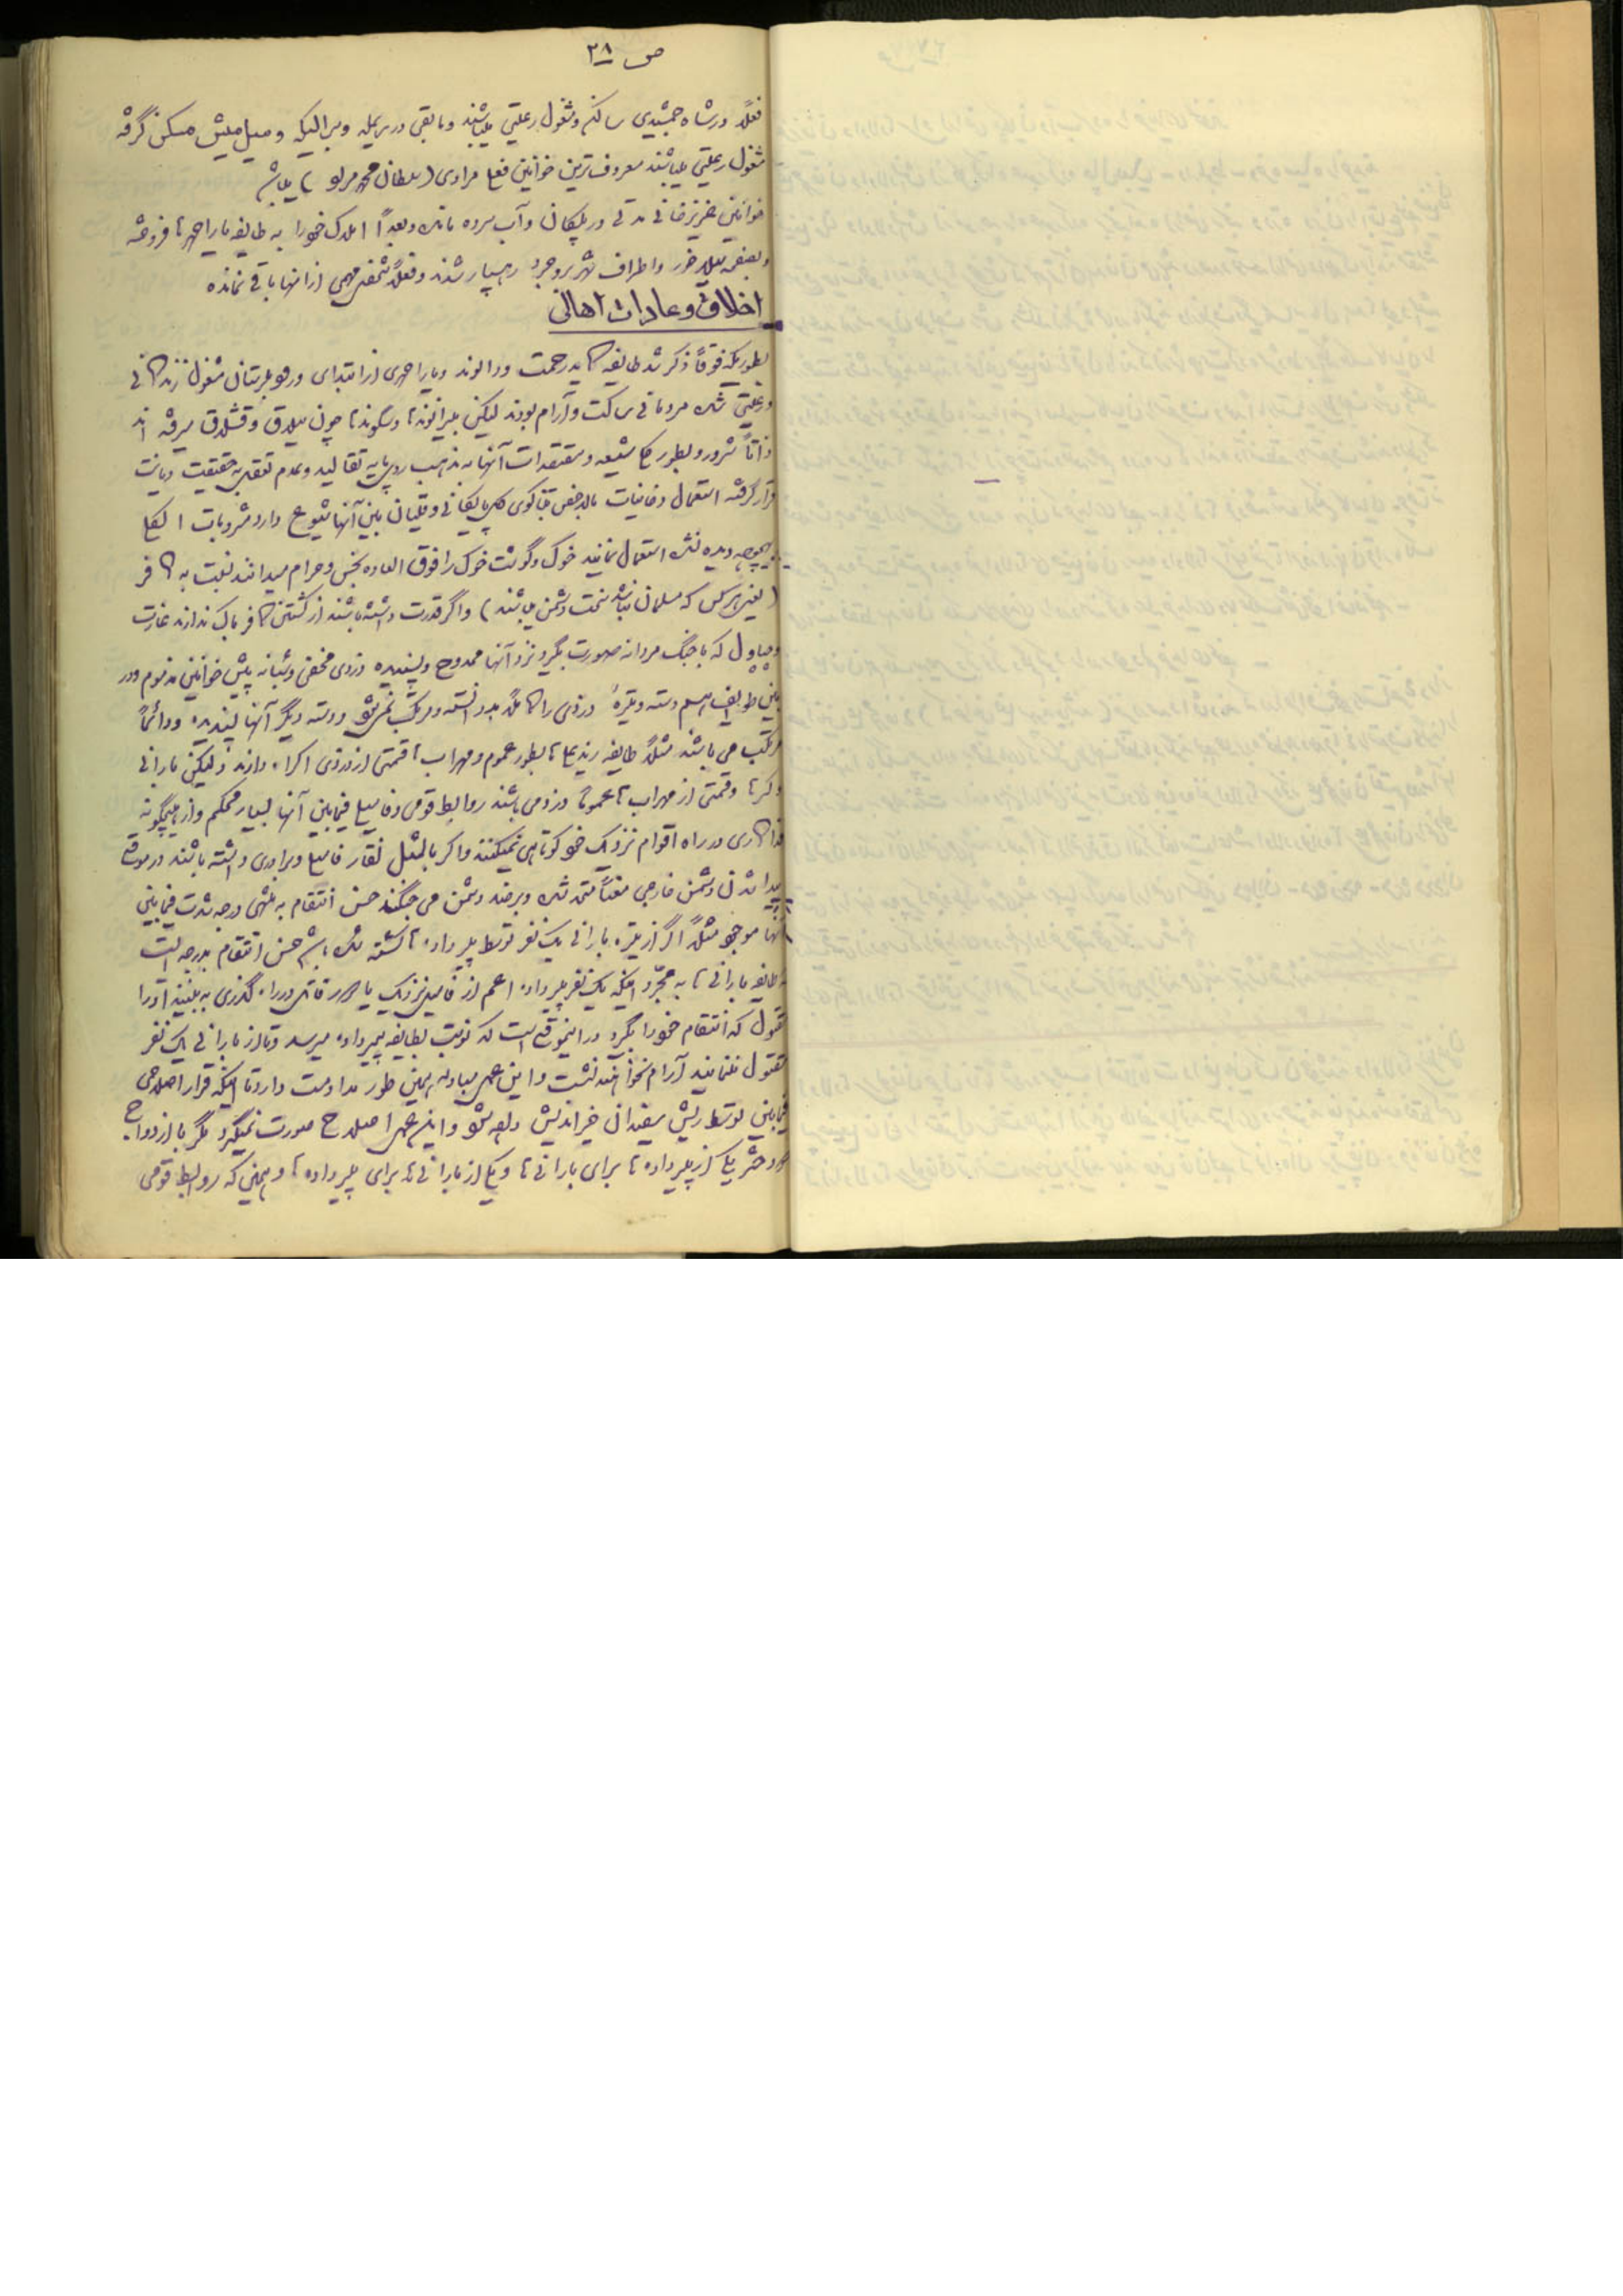 ص ۲۸
فعلاً در شاه جمشیدی ساکن و مشغول رعیتی میباشند و مابقی در و میل میش مسکن گرفته
مشغول رعیتی میباشند معروف ترین خوانین فعلی مرادی (سلطان محمد ) میباشد
خوانین عزیزخانی مدتی در و آب سرده مانده و بعداً املاک خود را به طایفه فروخته
و بعضی سیلاخور و اطراف شهر بروجرد رهسپار شدند و فعلاً شخص مهمی از آنها باقی نمانده
اخلاق و عادات اهالی
بطوریکه فوقاً ذکر شد طایفه رحمت و دالوند و از ابتدای ورود بلرستان مشغول زندگانی
رعیتی شده مردمانی ساکت و آرام بودند لیکن بیرانوندها و سگوندها چون ییلاق و قشلاق میرفته اند
ذاتاً شرور و بطور کلی شیعه و معتقدات آنها به مذهب روی پایه تقالید و عدم تعقل به حقیقت دیانت
قرار گرفته استعمال دخانیات بالاخص تنباکوی و قلیان بین آنها شیوع دارد مشروبات الکلی
بهیچوجه دیده نشده استعمال نمایند خوک و گوشت خوک را فوق العاده نجس و حرام میدانند نسبت به کافر
(یعنی هر کس که مسلمان نباشد سخت دشمن میباشند) و اگر قدرت داشته باشند از کشتن کافر باک ندارند غارت
و چپاول که با جنگ مردانه صورت بگیرد نزد آنها ممدوح و پسندیده دزدی مخفی و شبانه پیش خوانین مذموم و در
بین طوایف هم دسته و تیره دزدی را کاملاً بد دانسته و مرتکب نمیشوند و دسته دیگر آنها پسندیده و دائماً
مرتکب می باشند مثلاً طایفه ها بطور عموم و مهراب ها قسمتی از دزدی اکراه دارند و لیکن بارانی
و قسمتی از مهراب ها عموماً دزد می باشند روابط قومی و فامیلی فیمابین آنها بسیار محکم و از هیچگونه
فداکاری در راه اقوام نزدیک خود کوتاهی نمیکنند و اگر بالمثل نقار فامیلی و برادری داشته باشند در موقع
پیدا شدن دشمن خارجی متحد شده و بر ضد دشمن می جنگند حس انتقام به منتهی درجه شدت فیمابین
آنها موجود مثلاً اگر از تیره بارانی یک نفر توسط پیرداده ها کشته شده باشد حس انتقام بدرجه ایست
که طایفه بارانی ها به مجرد اینکه یک نفر پیرداده اعم از فامیل نزدیک یا خود قاتل در راه گذری به بینند او را
مقتول که انتقام خود را بگیرد در اینموقع است که نوبت بطایفه پیرداده میرسد و تا از بارانی یک نفر
مقتول ننمایند آرام نخواهند نشست و این عمل مبادله همین طور مداومت دارد تا اینکه قرار اصلاحی
فیمابین توسط ریش سفیدان خیراندیش داده شود و این عمل اصلاح صورت نمیگیرد مگر با ازدواج
دو دختر یکی از پیرداده ها برای بارانی ها و یکی از بارانی ها برای پیرداده ها و همین که روابط قومی